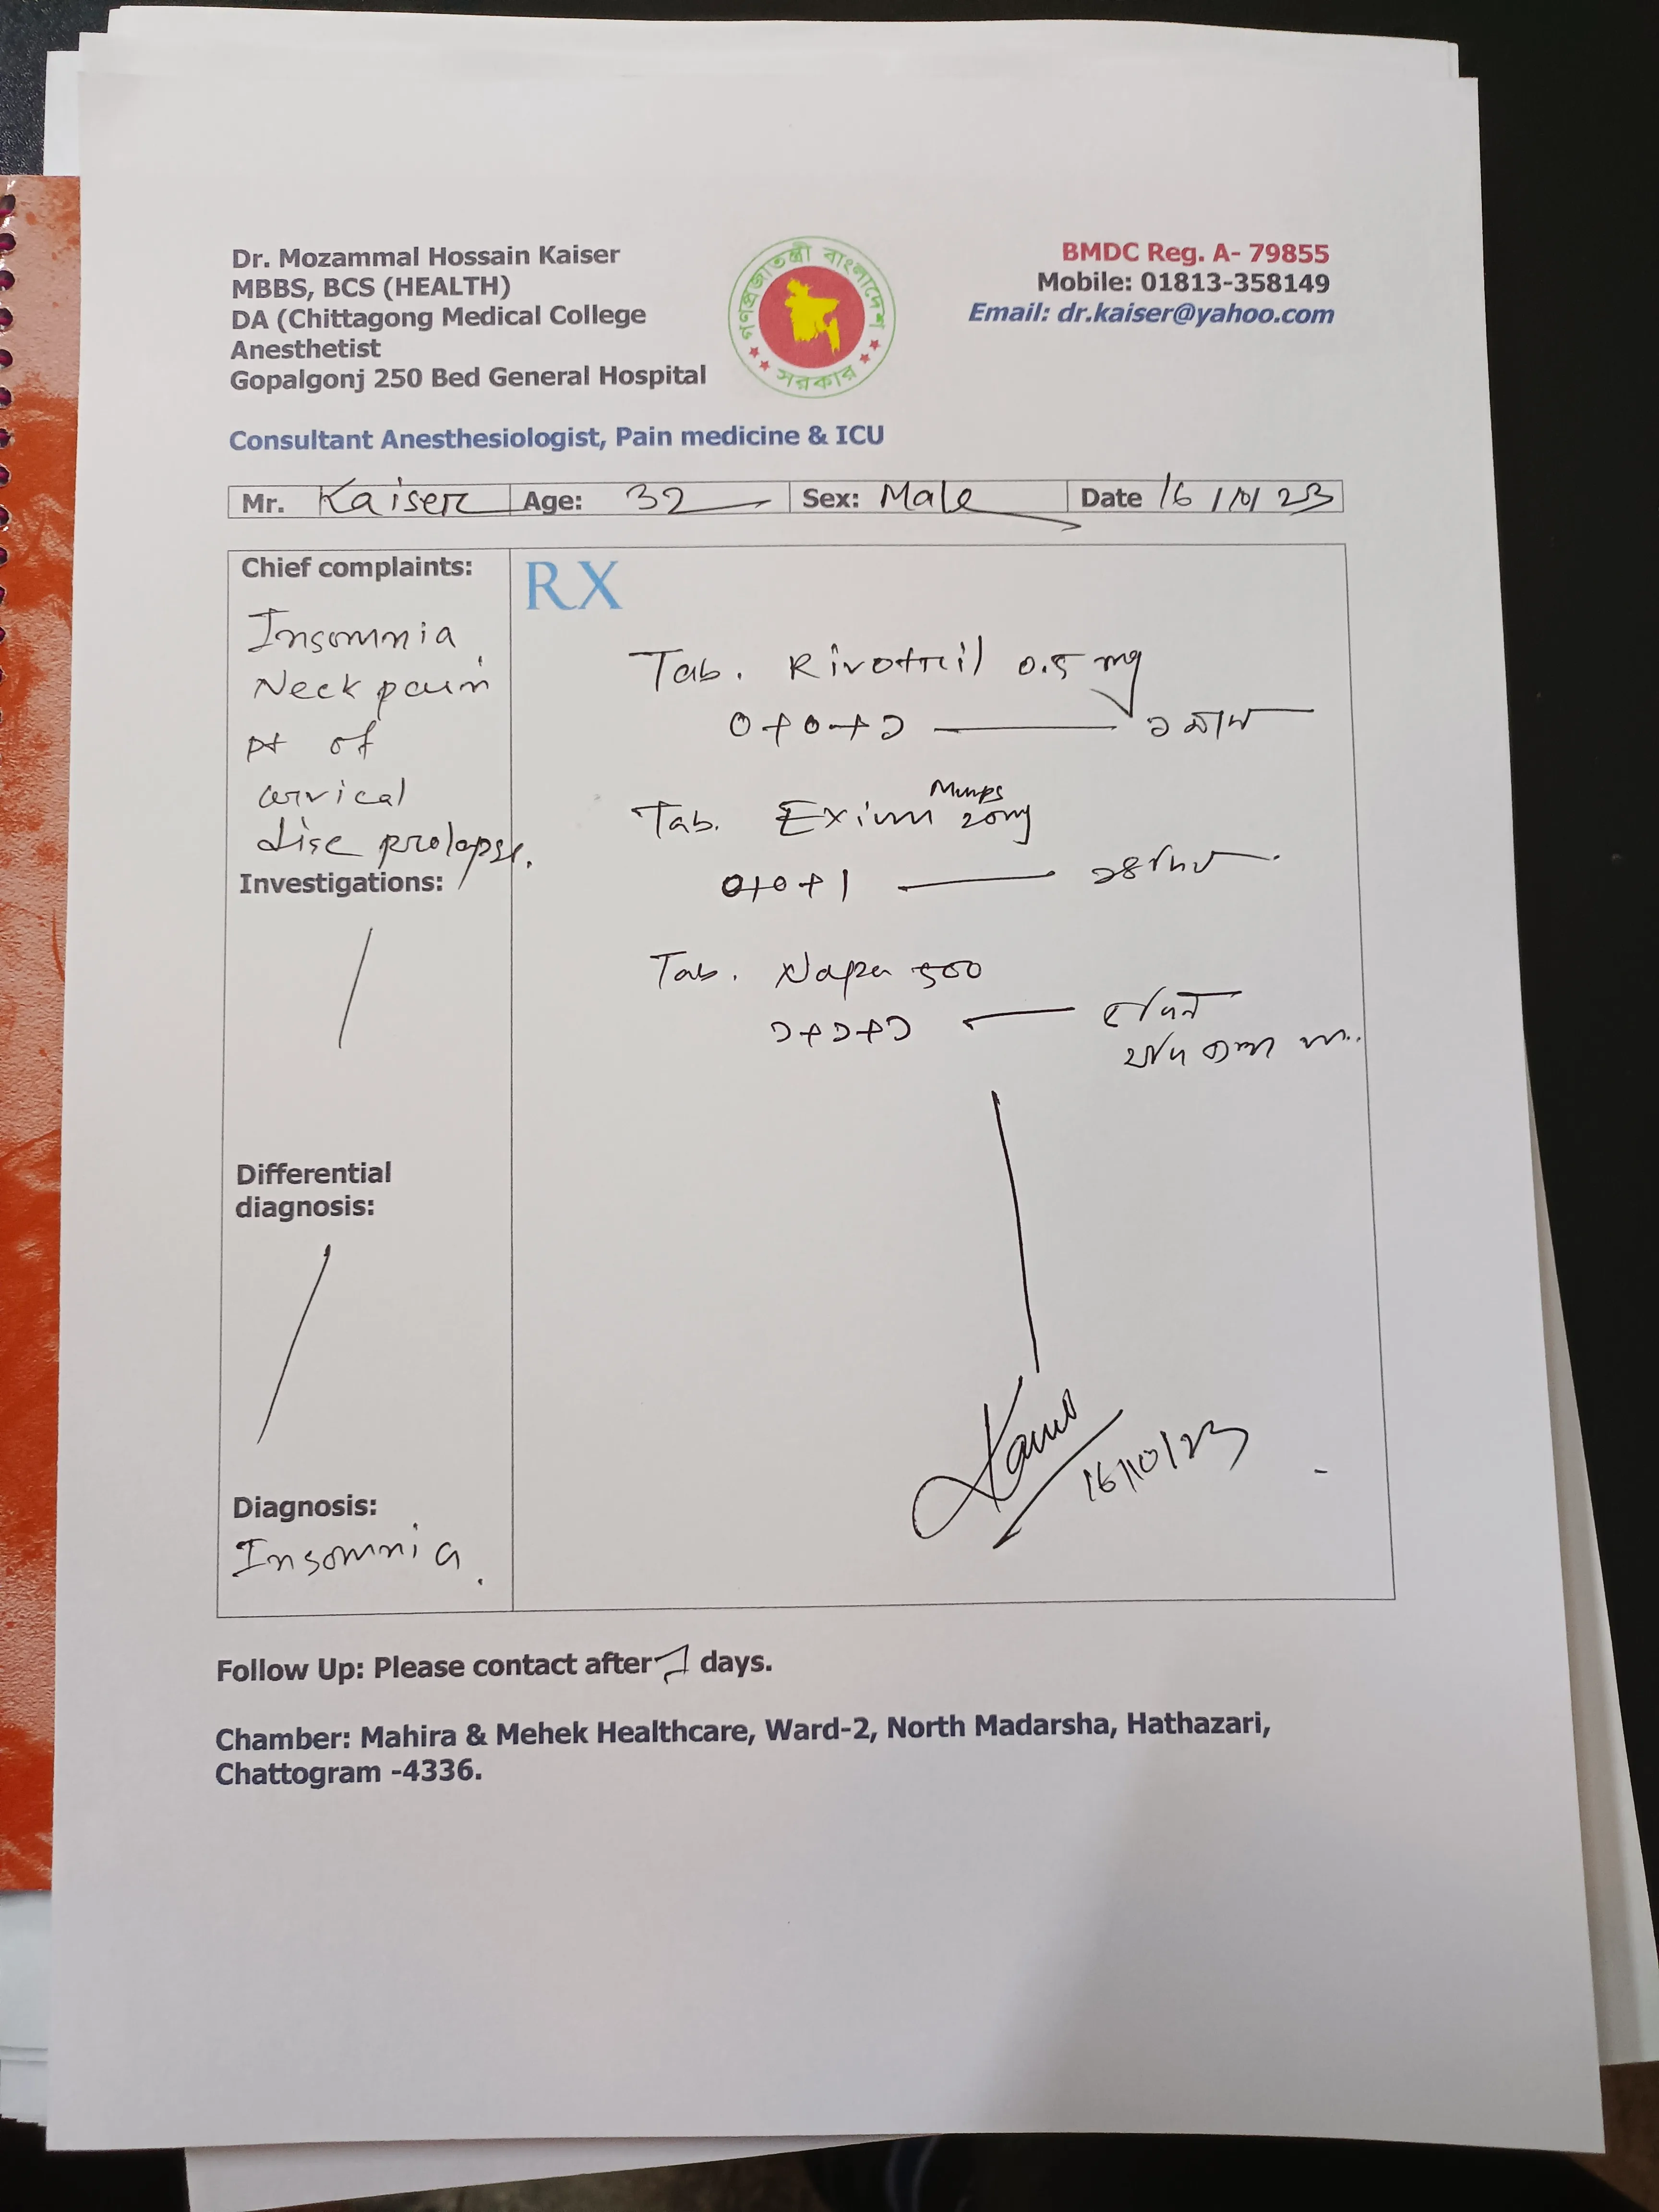 Dr. Mozammal Hossain Kaiser
MBBS, BCS (HEALTH)
DA (Chittagong Medical College
Anesthetist
Gopalgonj 250 Bed General Hospital
গণপ্রজাতন্ত্রী বাংলাদেশ
সরকার
BMDC Reg. A- 79855
Mobile: 01813-358149
Email: dr.kaiser@yahoo.com
Consultant Anesthesiologist, Pain medicine & ICU
Mr. Kaiser Age: 32 Sex: Male Date 16/10/23
Chief complaints:
Insomnia
Neck pain
pt of
cervical
disc prolapse.
Investigations:
Differential
diagnosis:
Diagnosis:
Insomnia.
RX
Tab. Rivotril 0.5 mg
0+0+১ ১ মাস
Tab. Exium 20mg
0+0+1 ১৪ দিন
Tab. Napa 500
১+১+১
16/10/23
Follow Up: Please contact after 7 days.
Chamber: Mahira & Mehek Healthcare, Ward-2, North Madarsha, Hathazari,
Chattogram -4336.